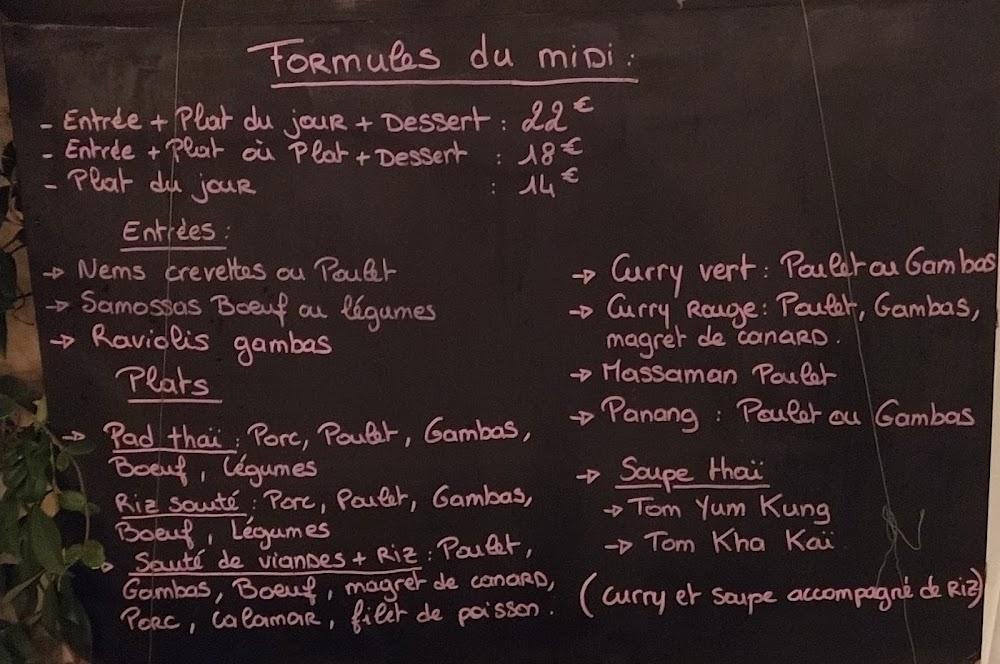 Formules du midi :
- Entrée + Plat du jour + Dessert : 22€
- Entrée + Plat où Plat + Dessert : 18€
- Plat du jour : 14€
Entrées :
→ Nems crevettes ou Poulet
→ Samossas Boeuf ou légumes
→ Raviolis gambas
Plats
→ Pad thaï : Porc, Poulet, Gambas,
Boeuf, légumes
Riz sauté : Porc, Poulet, Gambas,
Boeuf, Légumes
Sauté de viandes + Riz : Poulet,
Gambas, Boeuf, magret de canard,
Porc, calamar, filet de poisson.
→ Curry vert : Poulet ou Gambas
→ Curry Rouge : Poulet, Gambas,
magret de canard.
→ Massaman Poulet
→ Panang : Poulet ou Gambas
→ Soupe thaï
→ Tom Yum Kung
→ Tom Kha Kaï
(curry et soupe accompagné de Riz)